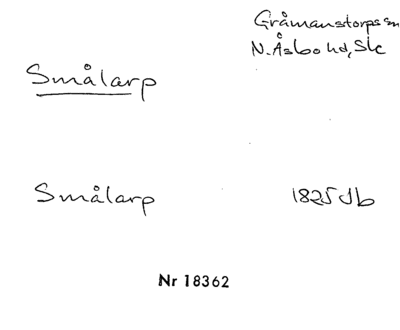 Gråmanstorps sn
N. Åsbo hd, Sk
Smålarp
Smålarp 1825 Jb
Nr 18362